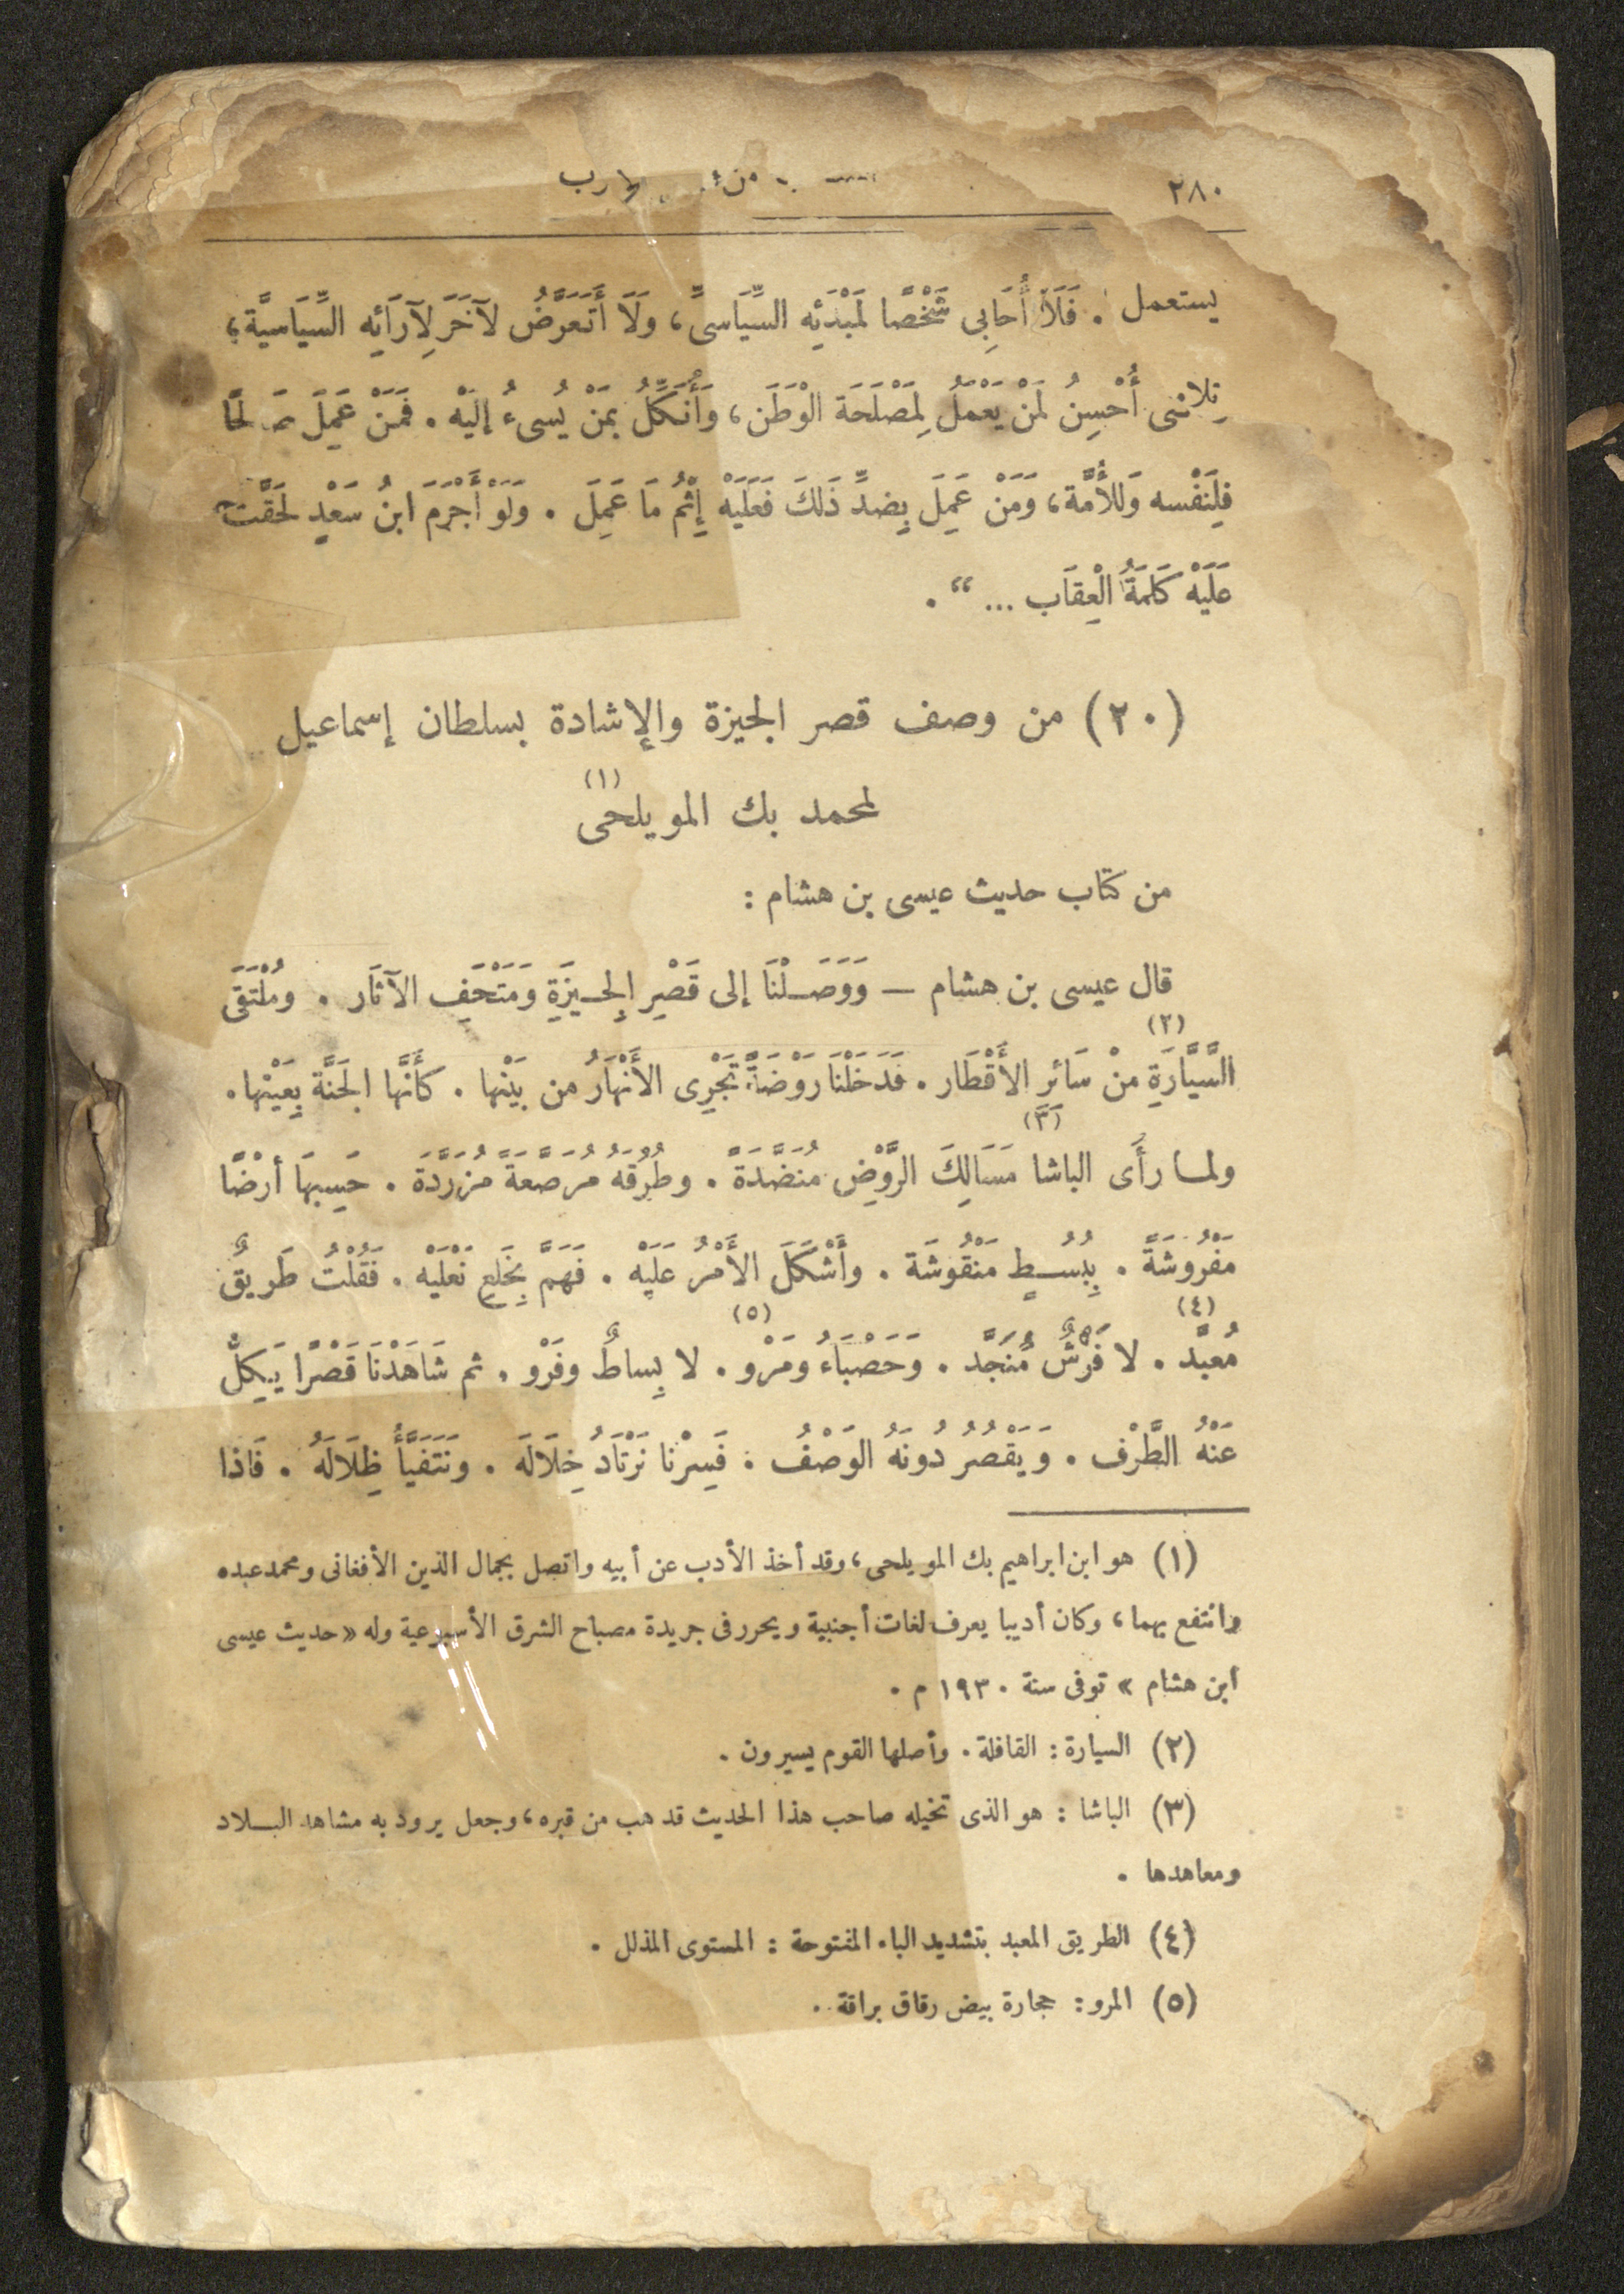 ٢٨٠
يستعمل . فَلَا أُحَابِى شَخْصًا لِمَبْدَئِهِ السِّيَاسىِّ ، وَلَا أَتَعَرَّضُ لآخَرَ لِآرَائِهِ السِّيَاسيَّة ،
أُحْسِنُ لِمَنْ يَعْمَلُ لِمَصْلَحَةِ الْوَطَن ، وَأُنَكِّلُ بِمَنْ يُسىءُ إلَيْه . فَمَنْ عَمِلَ
فَلِنَفْسه وَللأُمَّة ، وَمَنْ عَمِلَ بِضدِّ ذَلكَ فَعَلَيْه إِثْمُ مَا عَمِلَ . وَلَوْ أَجْرَمَ ابنُ سَعْدٍ لَحَقَّتْ
عَلَيْه كَلِمَةُ الْعِقَاب ... “ .
(٢٠) من وصف قصر الجيزة والإشادة بسلطان إسماعيل
لمحمد بك المويلحى (١)
من كتاب حديث عيسى بن هشام :
قال عيسى بن هشام — وَوَصَلْنَا إلى قَصْرِ الجِيزَةِ وَمَتْحَفِ الآثَار . ومُلْتَقَى
السَّيَّارَةِ (٢) مِنْ سَائرِ الأَقْطَار . فَدَخَلْنَا رَوْضَةً تَجْرِى الأَنْهَارُ من بَيْنها . كأَنَّها الجَنَّة بِعَيْنها .
ولما رأَى الباشا (٣) مَسَالِكَ الرَّوْضِ مُنَضَّدَةً . وطُرُقَهُ مُرَصَّعَةً مُزَرَّدَة . حَسِبهَا أرْضًا
مَفْرُوشَةً . بِبُسُطٍ مَنْقُوشَة . وأَشْكَلَ الأَمْرُ عَلَيْه . فَهَمَّ بِخَلْعِ نَعْلَيْه . فَقُلْتُ طَرِيقٌ
مُعبَّد (٤) . لا فَرْشٌ مُنَجَّد . وَحَصْبَاءُ ومَرْو (٥) . لا بِساطٌ وفَرْو . ثم شَاهَدْنَا قَصْرًا يَكِلُّ
عَنْهُ الطَّرْف . وَيَقْصُرُ دُونَهُ الوَصْفُ . فَسِرْنا نَرْتَادُ خِلَالَهَ . وَنَتَفَيَّأُ ظِلَالَهُ . فَاذا
(١) هو ابن ابراهيم بك المويلحى ، وقد أخذ الأدب عن أبيه واتصل بجمال الدين الأفغانى ومحمد عبده
وانتفع بهما ، وكان أديبا يعرف لغات أجنبية ويحرر فى جريدة مصباح الشرق الأسبوعية وله « حديث عيسى
ابن هشام » توفى سنة ١٩٣٠ م .
(٢) السيارة : القافلة . وأصلها القوم يسيرون .
(٣) الباشا : هو الذى تخيله صاحب هذا الحديث قد هب من قبره ، وجعل يرود به مشاهد البلاد
ومعاهدها .
(٤) الطريق المعبد بتشديد الباء المفتوحة : المستوى المذلل .
(٥) المرو : حجارة بيض رقاق براقة .